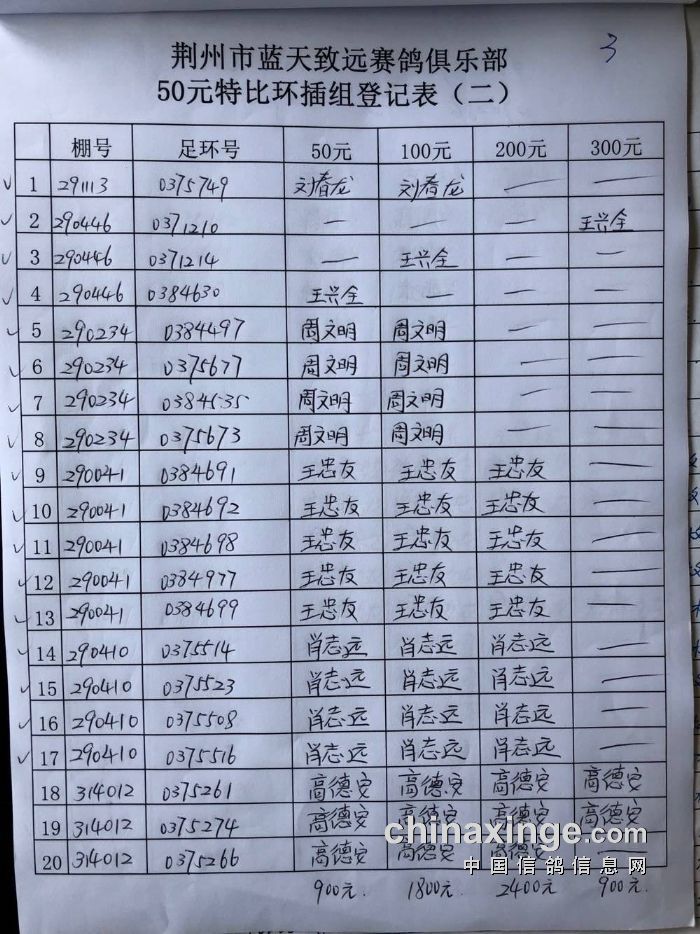 3
荆州市蓝天致远赛鸽俱乐部
50元特比环插组登记表（二）
棚号 足环号 50元 100元 200元 300元
1 291113 0375749 刘春龙 刘春龙 — —
2 290446 0371210 — — — 王兴全
3 290446 0371214 — 王兴全 — —
4 290446 0384630 王兴全 — — —
5 290234 0384497 周文明 周文明 — —
6 290234 0375677 周文明 周文明 — —
7 290234 0384535 周文明 周文明 — —
8 290234 0375673 周文明 周文明 — —
9 290041 0384691 王忠友 王忠友 王忠友 —
10 290041 0384692 王忠友 王忠友 王忠友 —
11 290041 0384698 王忠友 王忠友 王忠友 —
12 290041 0384977 王忠友 王忠友 王忠友 —
13 290041 0384699 王忠友 王忠友 王忠友 —
14 290410 0375514 肖志远 肖志远 肖志远 —
15 290410 0375523 肖志远 肖志远 肖志远 —
16 290410 0375508 肖志远 肖志远 肖志远 —
17 290410 0375516 肖志远 肖志远 肖志远 —
18 314012 0375261 高德安 高德安 高德安 高德安
19 314012 0375274 高德安 高德安 高德安 高德安
20 314012 0375266 高德安 高德安 高德安 —
chinaxinge.com
中国信鸽信息网
900元. 1800元. 2400元 900元.